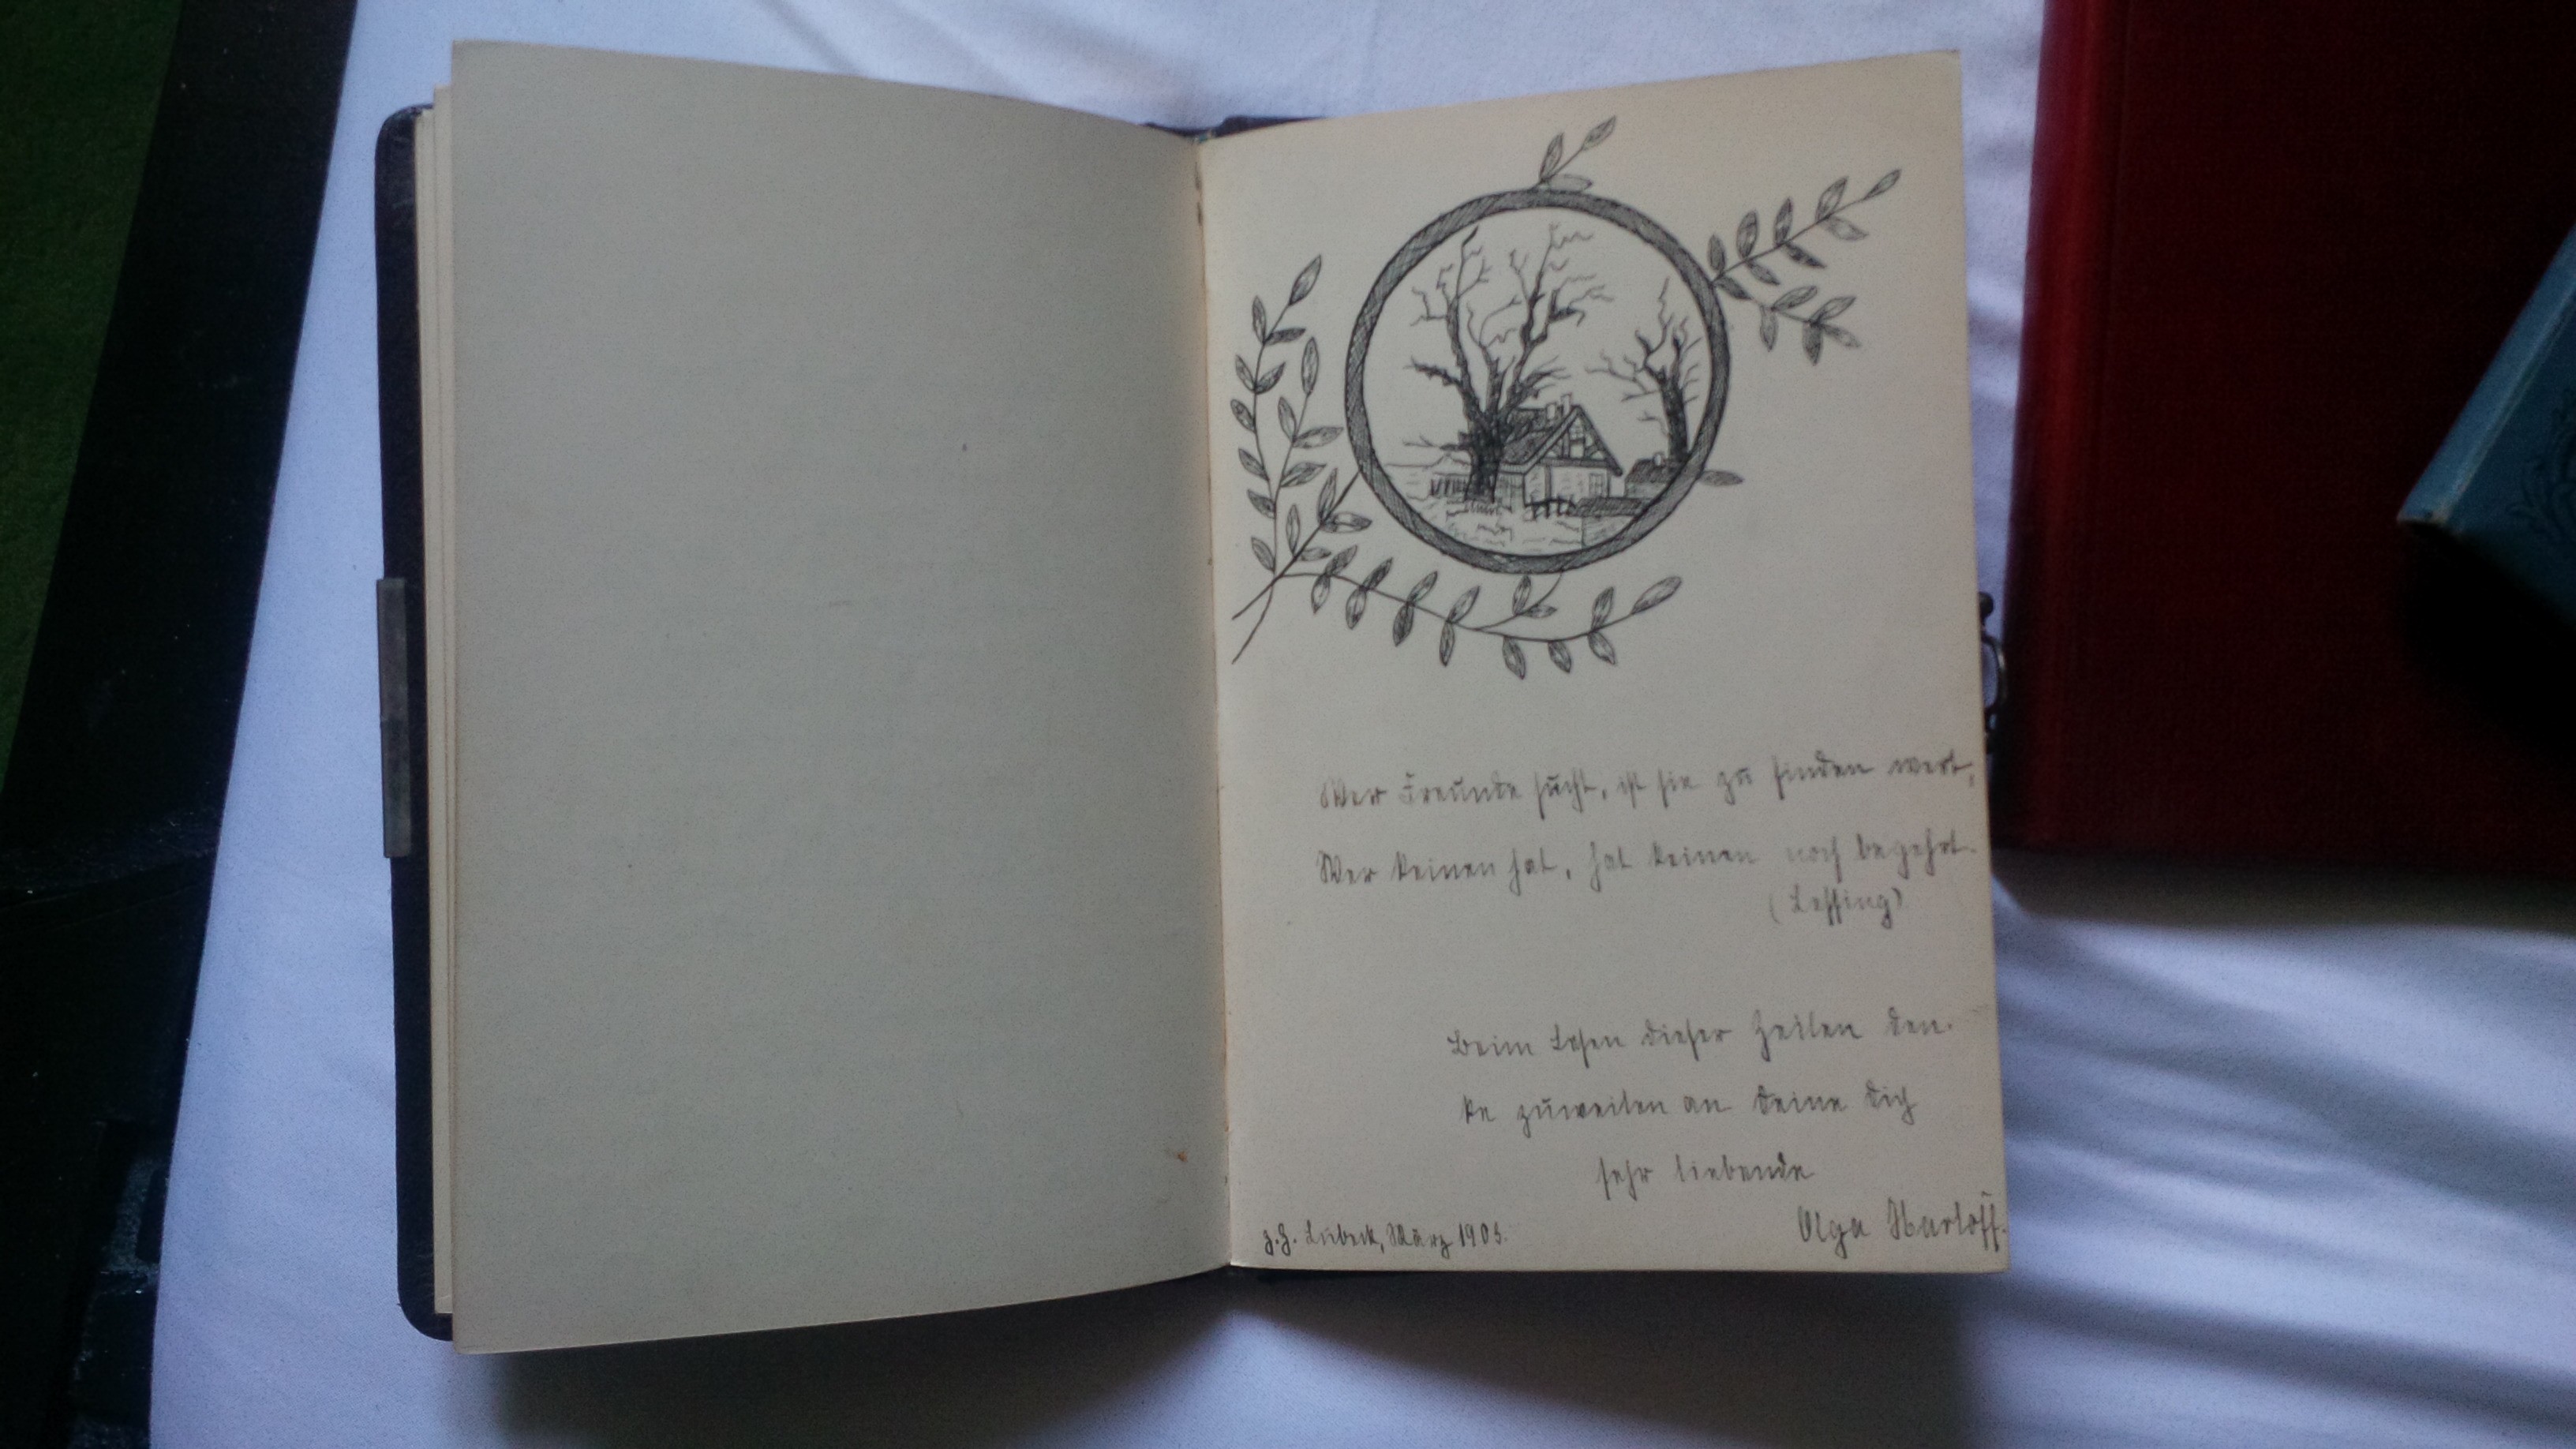 Wer Freunde sucht, ist sie zu finden wert,
Wer keinen hat, hat keinen noch begehrt.
(Lessing)
Beim Lesen dieser Zeilen den-
ke zuweilen an Deine Dich
sehr liebende
Olga
z. Z. Lübeck, März 1905.